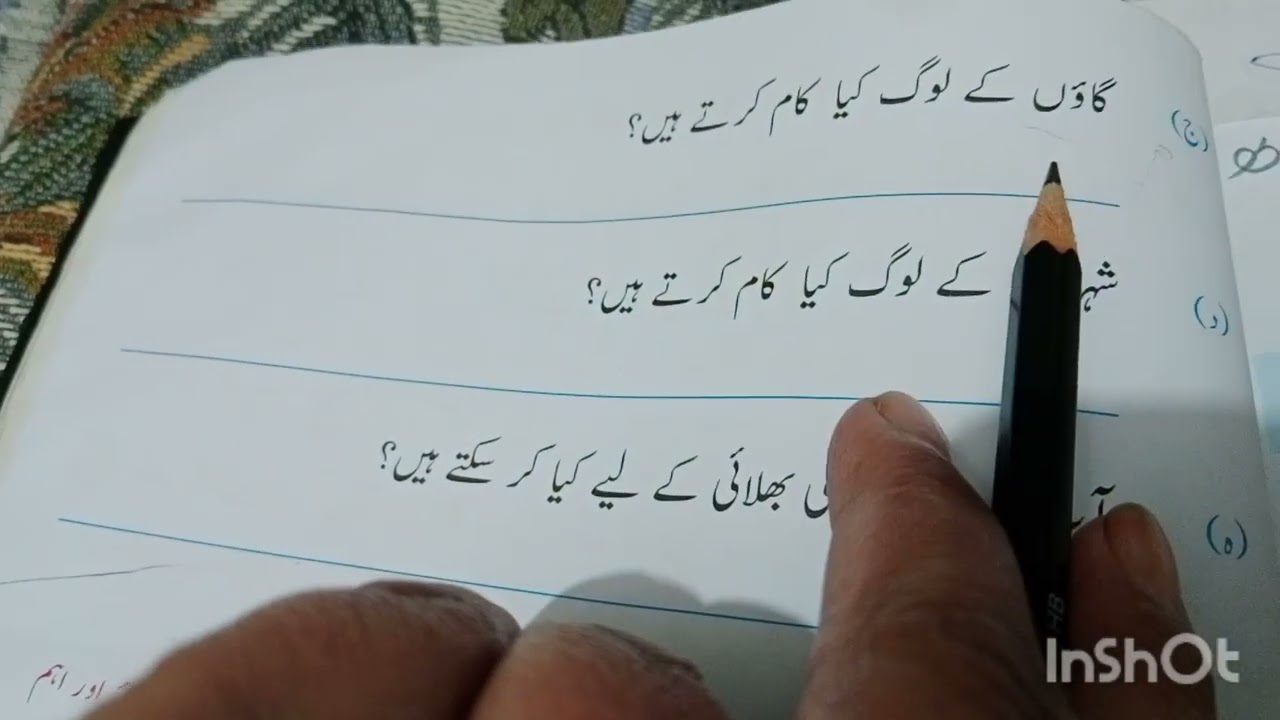 (ج) گاؤں کے لوگ کیا کام کرتے ہیں؟
(د) شہر کے لوگ کیا کام کرتے ہیں؟
(ہ) کی بھلائی کے لیے کیا کر سکتے ہیں؟
اور اہم
HB
InShOt